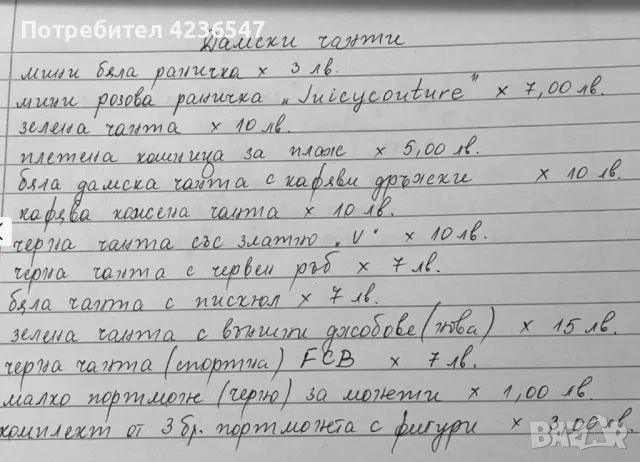 Потребител 4236547
Дамски чанти
мини бяла раничка x 3 лв.
мини розова раничка „Juicycouture" x 7,00 лв.
зелена чанта x 10 лв.
плетена кошница за плаж x 5,00 лв.
бяла дамска чанта с кафяви дръжки x 10 лв.
кафява кожена чанта x 10 лв.
черна чанта със златно „V" x 10 лв.
черна чанта с червен ръб x 7 лв.
бяла чанта с пискюл x 7 лв.
зелена чанта с външни джобове (нова) x 15 лв.
черна чанта (спортна) FCB x 7 лв.
малко портмоне (черно) за монети x 1,00 лв.
комплект от 3 бр. портмонета с фигури x 3,00 лв.
bazar